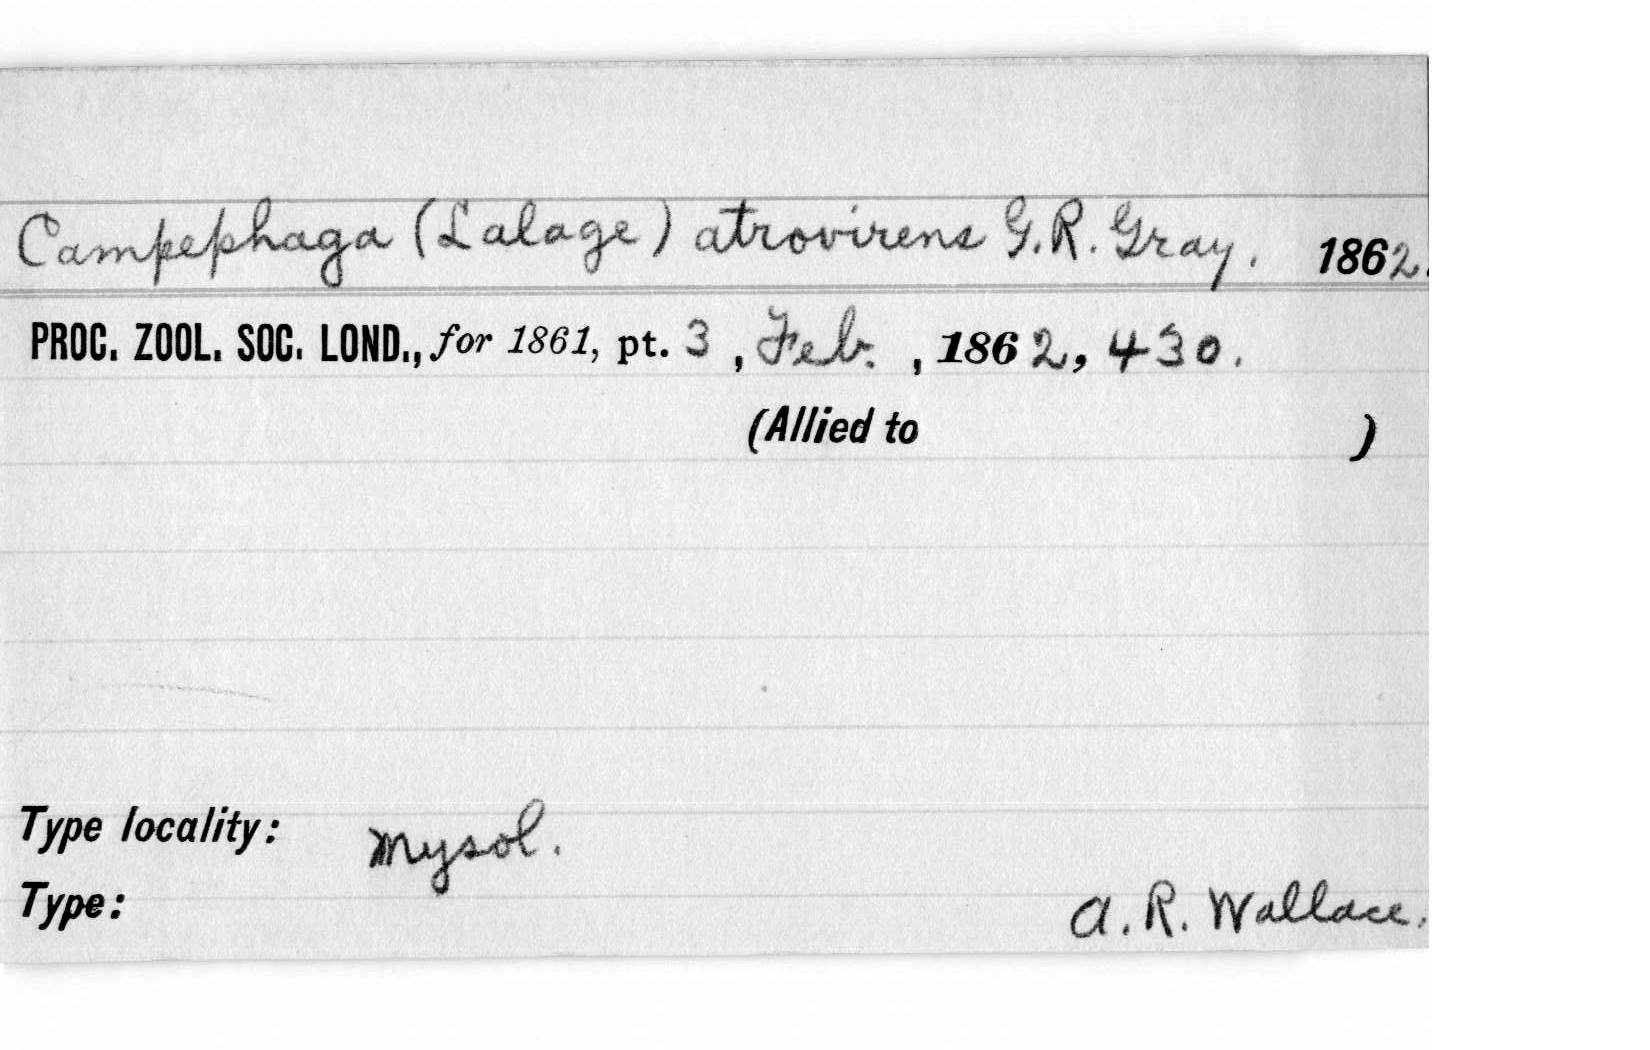 Campephaga (Lalage) atrovirens G.R. Gray. 1862.
PROC. ZOOL. SOC. LOND., for 1861, pt. 3, Feb., 1862, 430.
(Allied to )
Type locality: Mysol.
Type: A. R. Wallace.